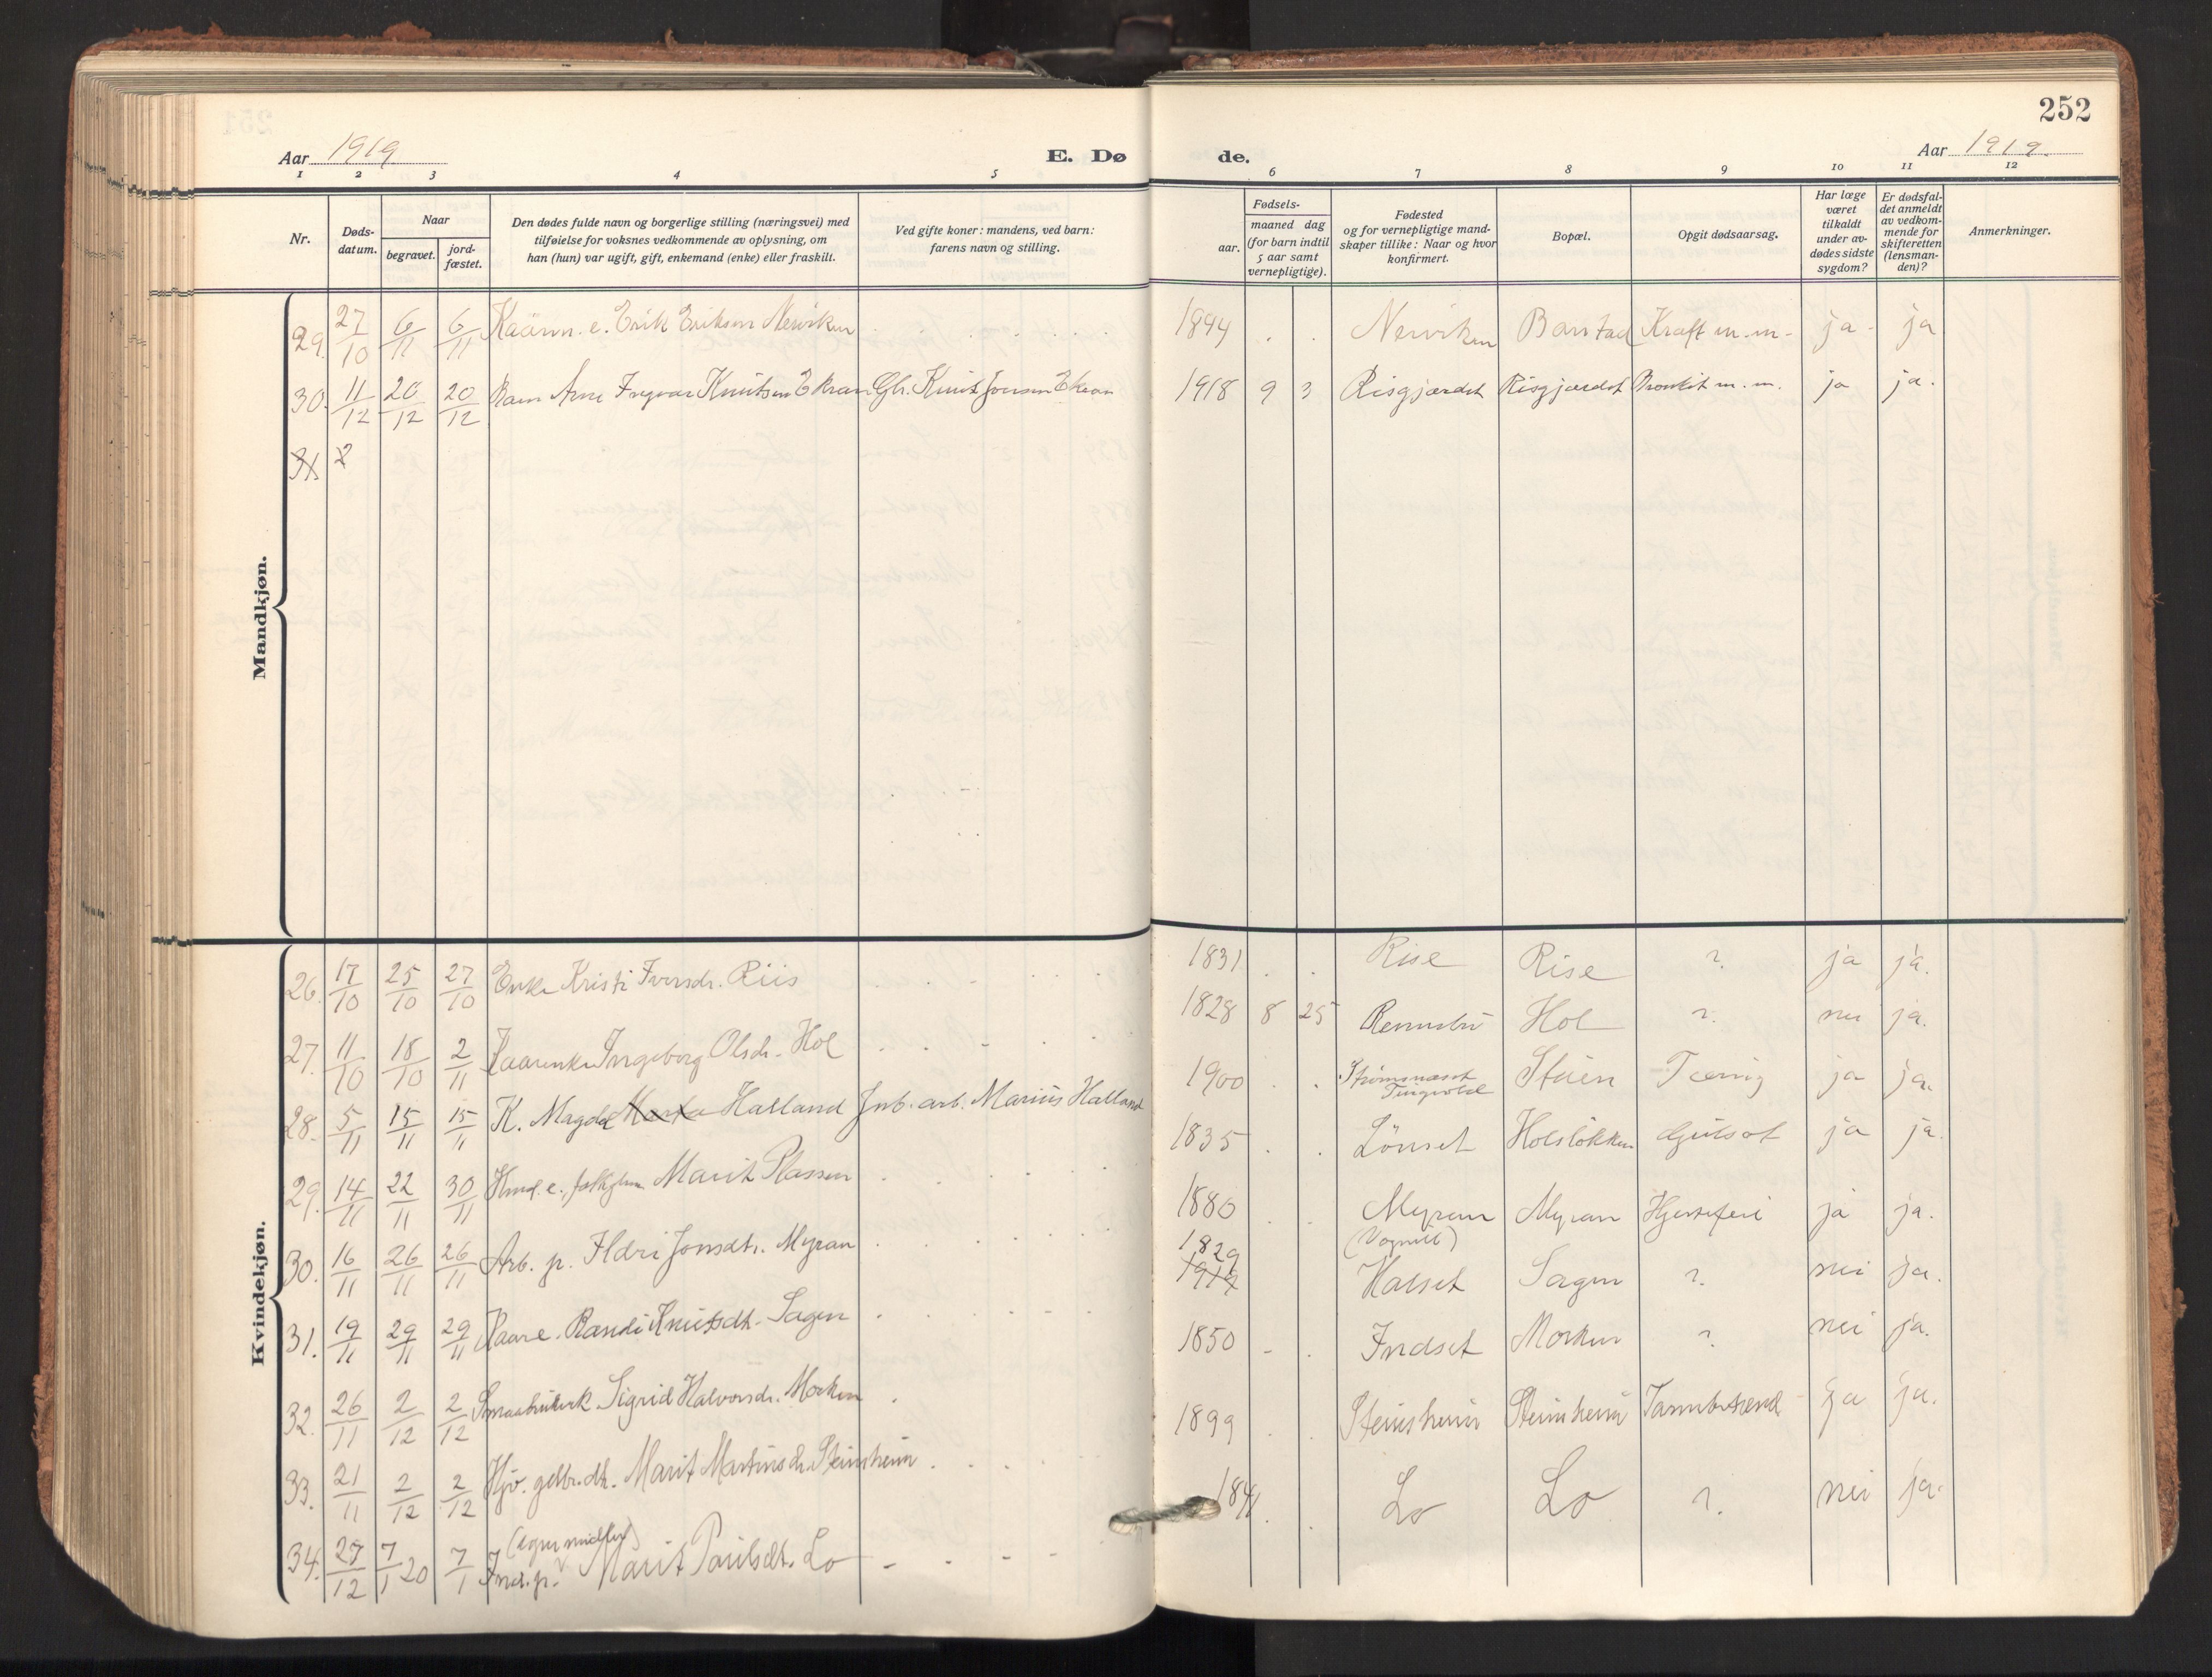 252
Aar 1919
E. Døde.
Aar 1919.
1 2 3 4 5 6 7 8 9 10 11 12
Nr.
Døds-datum.
Naar
begravet.
jord-fæstet.
Den dødes fulde navn og borgerlige stilling (næringsvei) med
tilføielse for voksnes vedkommende av oplysning, om
han (hun) var ugift, gift, enkemand (enke) eller fraskilt.
Ved gifte koner: mandens, ved barn:
farens navn og stilling.
Fødsels-
aar.
maaned dag
(for barn indtil
5 aar samt
vernepligtige).
Fødested
og for vernepligtige mand-
skaper tillike: Naar og hvor
konfirmert.
Bopæl.
Opgit dødsaarsag.
Har læge
været
tilkaldt
under av-
dødes sidste
sygdom?
Er dødsfal-
det anmeldt
av vedkom-
mende for
skifteretten
(lensman-
den)?
Anmerkninger.
Mandkjøn.
29. 27/10 6/11 6/11 Erik Eriksen 1894 Kraft m.m. ja ja
30. 11/12 20/12 20/12 Barn Arne Ingvar Knutsen Ekran Gbr. Knut Jonsen Ekran 1918 9 3 Risgjærdet Risgjærdet Bronkit m.m. ja ja.
31 2
Kvindekjøn.
26. 17/10 25/10 27/10 Enke Kristi Iversdr. Riis 1831 Rise Rise ? ja ja.
27. 11/10 18/10 2/11 Ingeborg Olsdr. Hol 1828 8 25 Hol ? nei ja.
28. 5/11 15/11 15/11 K. Magda Marta Halland Inb. arb. Marius Halland 1900 Strømsnæset Tingvold Stuen Tæring ja ja.
29. 14/11 22/11 30/11 Marit Plassen 1835 Lönset Holslökken Gulsot ja ja.
30. 16/11 26/11 26/11 Arb. p. Ildri Jonsdtr. Myran 1880 Myran (Vognill) Myran Hjertefeil ja ja.
31. 19/11 29/11 29/11 Kaare. Randi Knutsdt. Sagen 1829 1919 Halset Sagen ? nei ja.
32. 26/11 2/12 2/12 Sigrid Halvorsdr. Morken 1850 Indset Morken ? nei ja.
33. 21/11 2/12 2/12 Hjv. gdbr.dt. Marit Martinsdr. Steinsheim 1899 Steinsheim Steinsheim ja ja.
34. 27/12 7/1 20 7/1 Ind. p. (egne midler) Marit Paulsdt. Lo 1841 Lo Lo ? nei ja.